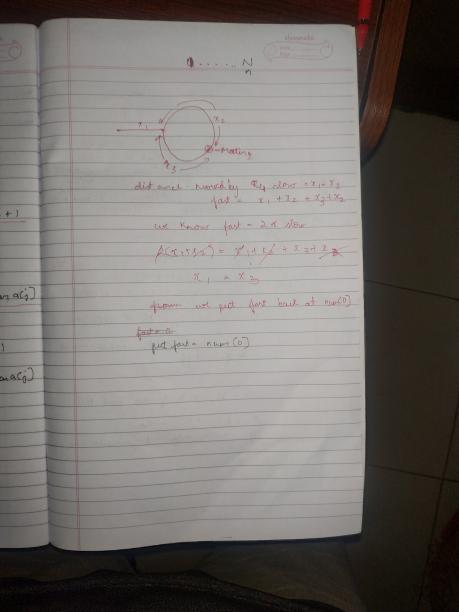 classmate
0 . . . . . N
n
x1
x2
Meeting
x3
+1
distance moved by slow = x1+x2
fast = x1 + x2 + x3+x2
we know fast = 2 x slow
2(x1+x2) = x1+x2 + x3+x2
x1 = x3
from we put fast back at num[0]
a[j]
fast =
put fast = nums[0]
a[j]